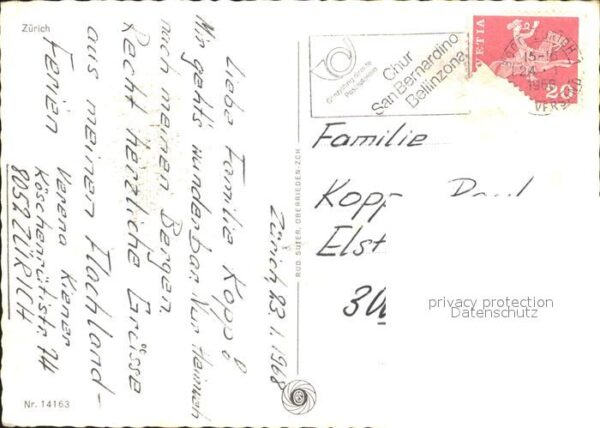 Zürich
Zürich 23.1.1968
Liebe Familie Kopp!
Mir geht's wunderbar. Nur Heimweh
nach meinen Bergen.
Recht herzliche Grüsse
aus meinen Flachland-
Ferien
Verena Kiener
Köschenrütistr. 74
8052 ZÜRICH
Nr. 14163
RUD. SUTER, OBERRIEDEN-ZCH
Chur
San Bernardino
Bellinzona
HELVETIA
15-
24.
1968
20
Familie
Kopp
Elst
30
privacy protection
Datenschutz